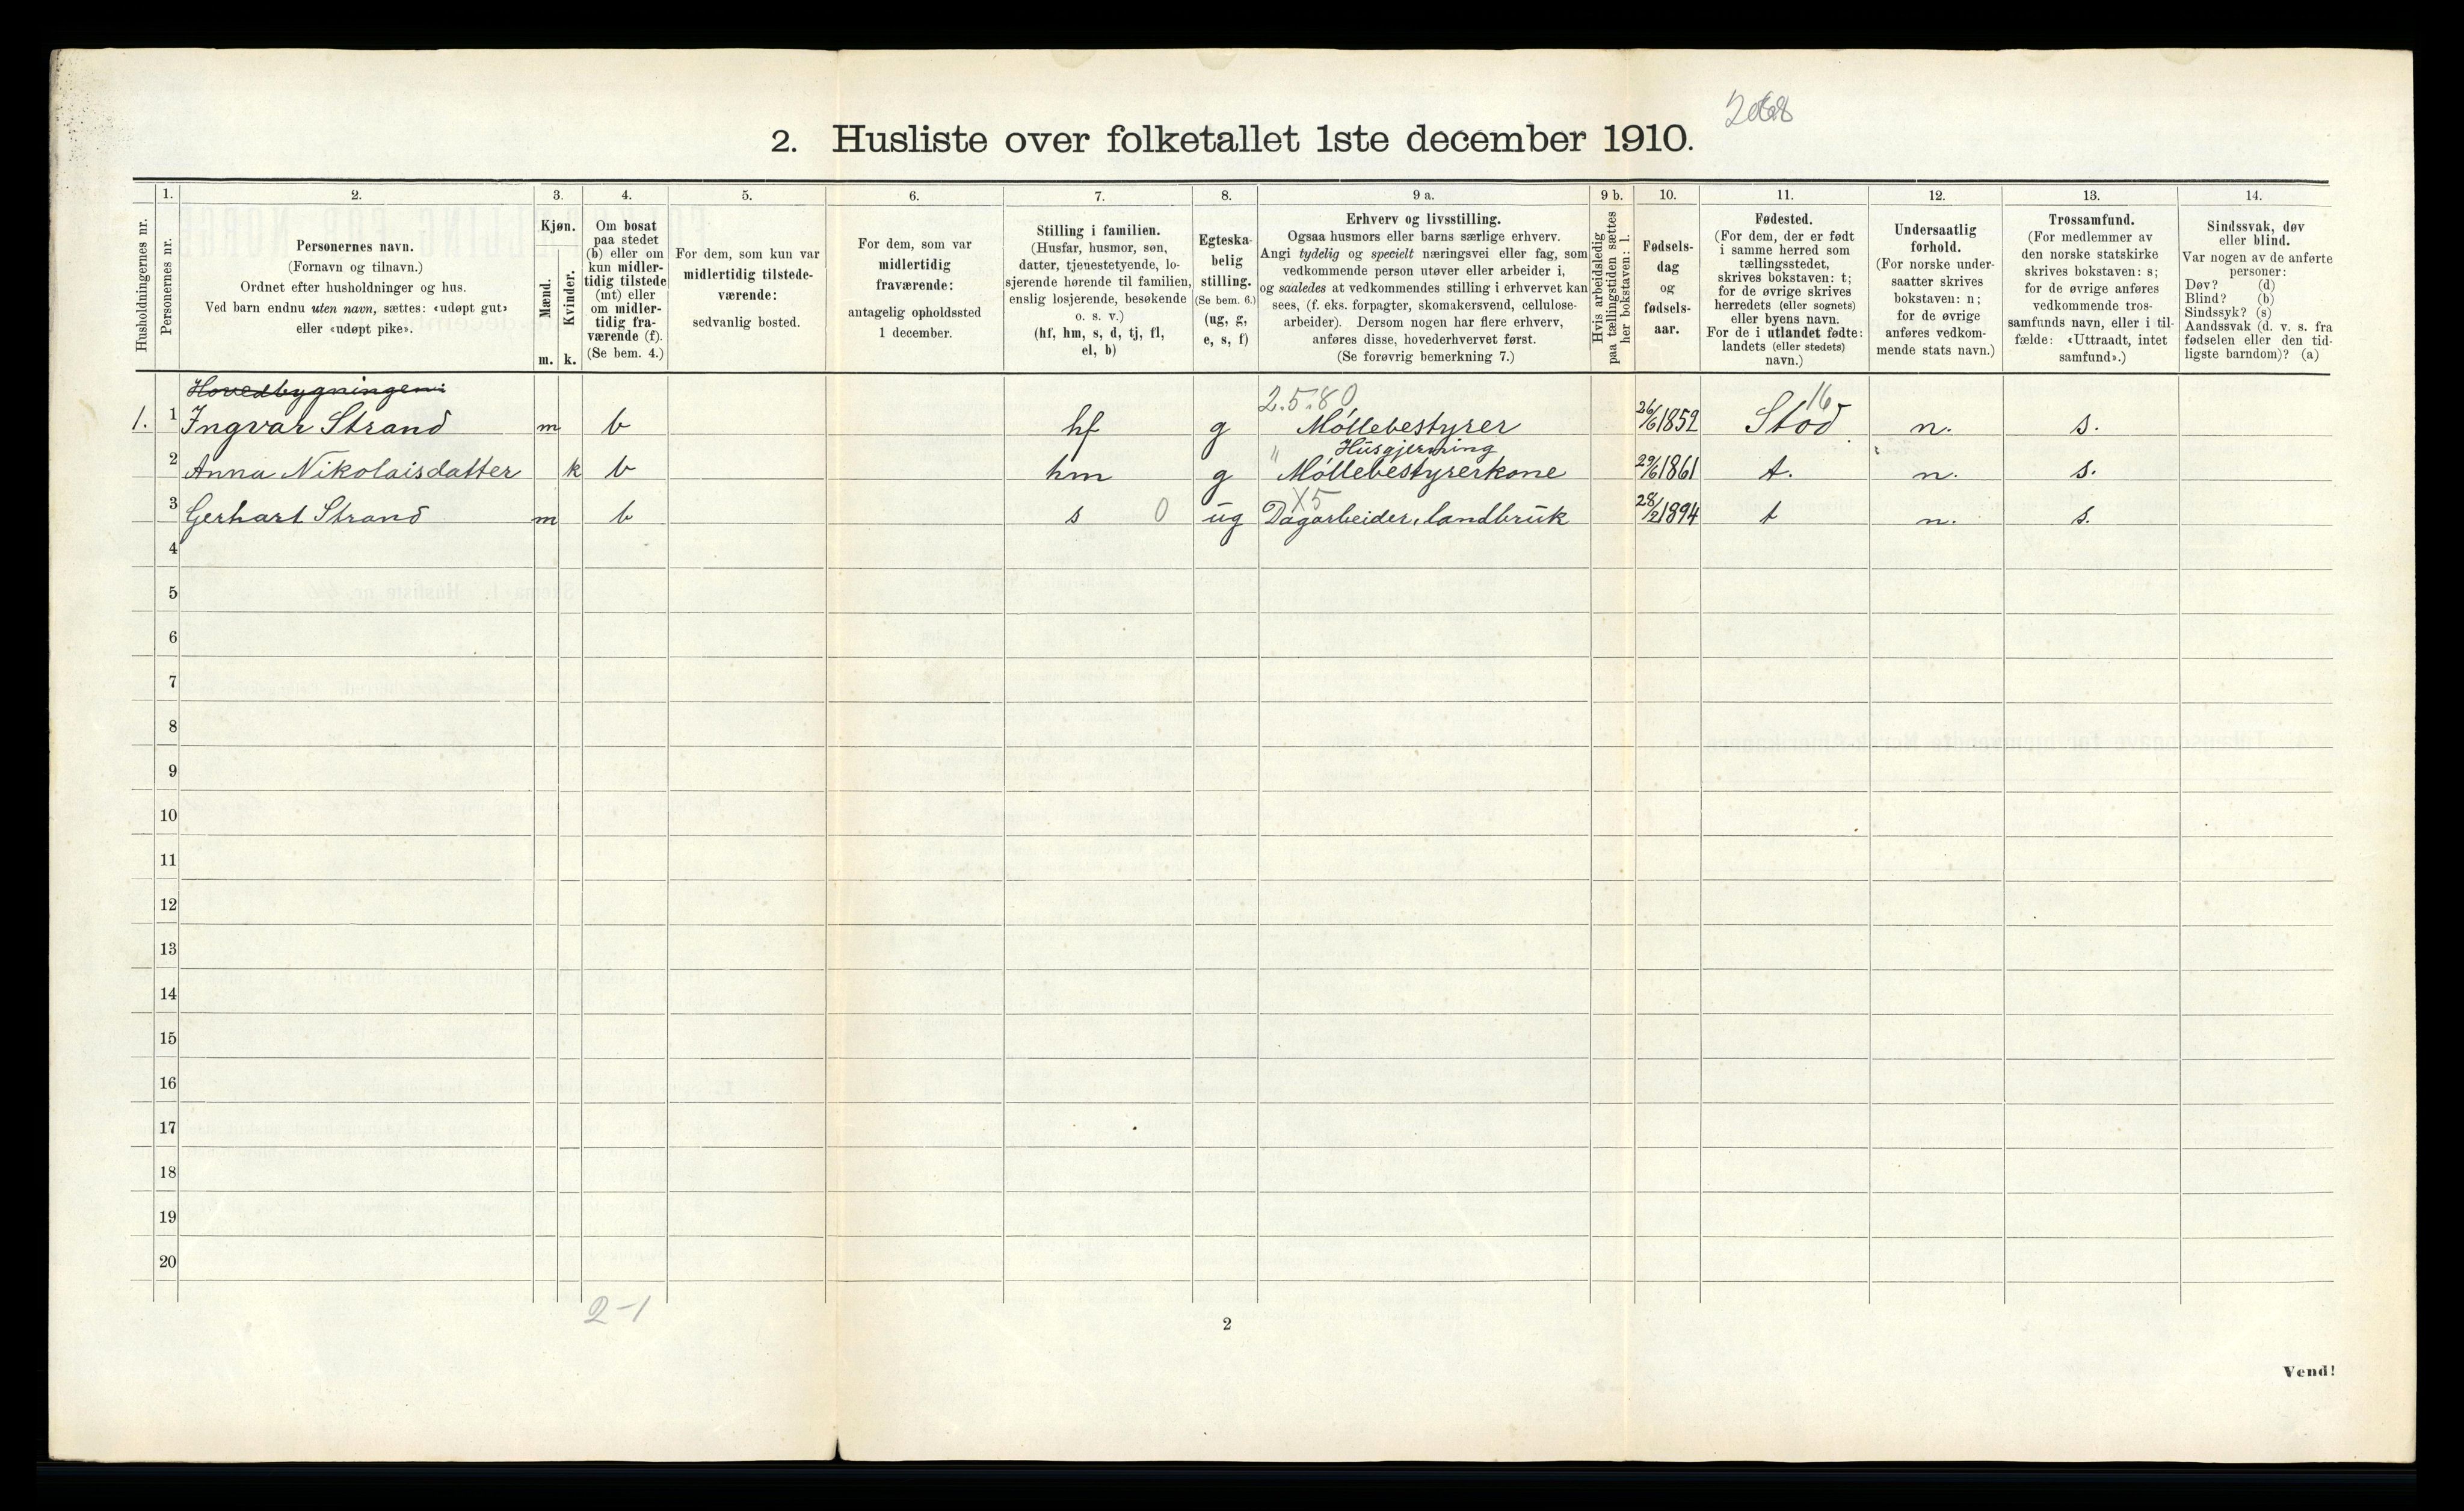 2. Husliste over folketallet 1ste december 1910.
Husholdningernes nr.
1.
Personernes nr.
2.
Personernes navn.
(Fornavn og tilnavn.)
Ordnet efter husholdninger og hus.
Ved barn endnu uten navn, sættes: «udøpt gut»
eller «udøpt pike».
3.
Kjøn.
Mænd.
Kvinder.
m. k.
4.
Om bosat
paa stedet
(b) eller om
kun midler-
tidig tilstede
(mt) eller
om midler-
tidig fra-
værende (f).
(Se bem. 4.)
5.
For dem, som kun var
midlertidig tilstede-
værende:
sedvanlig bosted.
6.
For dem, som var
midlertidig
fraværende:
antagelig opholdssted
1 december.
7.
Stilling i familien.
(Husfar, husmor, søn,
datter, tjenestetyende, lo-
sjerende hørende til familien,
enslig losjerende, besøkende
o. s. v.)
(hf, hm, s, d, tj, fl,
el, b)
8.
Egteska-
belig
stilling.
(Se bem. 6.)
(ug, g,
e, s, f)
9 a.
Erhverv og livsstilling.
Ogsaa husmors eller barns særlige erhverv.
Angi tydelig og specielt næringsvei eller fag, som
vedkommende person utøver eller arbeider i,
og saaledes at vedkommendes stilling i erhvervet kan
sees, (f. eks. forpagter, skomakersvend, cellulose-
arbeider). Dersom nogen har flere erhverv,
anføres disse, hovederhvervet først.
(Se forøvrig bemerkning 7.)
9 b.
Hvis arbeidsledig
paa tællingstiden sættes
her bokstaven: l.
10.
Fødsels-
dag
og
fødsels-
aar.
11.
Fødested.
(For dem, der er født
i samme herred som
tællingsstedet,
skrives bokstaven: t;
for de øvrige skrives
herredets (eller sognets)
eller byens navn.
For de i utlandet fødte:
landets (eller stedets)
navn.)
12.
Undersaatlig
forhold.
(For norske under-
saatter skrives
bokstaven: n;
for de øvrige
anføres vedkom-
mende stats navn.)
13.
Trossamfund.
(For medlemmer av
den norske statskirke
skrives bokstaven: s;
for de øvrige anføres
vedkommende tros-
samfunds navn, eller i til-
fælde: «Uttraadt, intet
samfund».)
14.
Sindssvak, døv
eller blind.
Var nogen av de anførte
personer:
Døv? (d)
Blind? (b)
Sindssyk? (s)
Aandssvak (d. v. s. fra
fødselen eller den tid-
ligste barndom)? (a)
Hovedbygningen:
2.5.80 16
1. 1 Ingvar Strand m b hf g Møllebestyrer 26/6 1852 Stod n. s.
" Husgjerning
2 Anna Nikolaisdatter k b hm g Møllebestyrerkone 29/6 1861 t. n. s.
X5
3 Gerhart Strand m b s 0 ug Dagarbeider, landbruk 28/2 1894 t n. s.
4
5
6
7
8
9
10
11
12
13
14
15
16
17
18
19
20
2-1
2
Vend!